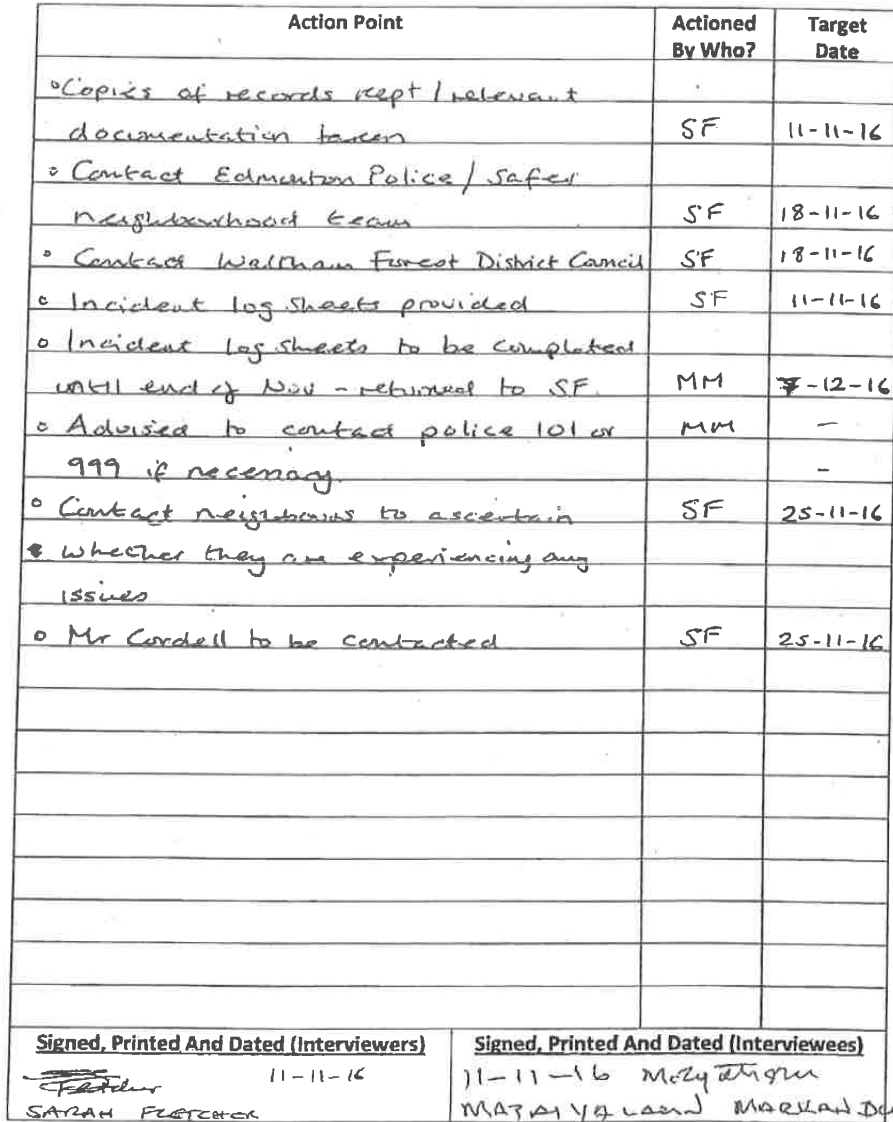 Action Point Actioned By Who? Target Date
°Copies of records kept / relevant
documentation taken SF 11-11-16
° Contact Edmonton Police / Safer
neighbourhood team SF 18-11-16
° Contact Waltham Forest District Council SF 18-11-16
° Incident log sheets provided SF 11-11-16
° Incident log sheets to be completed
until end of Nov - returned to SF. MM 7-12-16
° Advised to contact police 101 or MM -
999 if necessary. -
° Contact neighbours to ascertain SF 25-11-16
whether they are experiencing any
issues
° Mr Cordell to be contacted SF 25-11-16
Signed, Printed And Dated (Interviewers) Signed, Printed And Dated (Interviewees)
Fletcher 11-11-16 11-11-16
SARAH FLETCHER